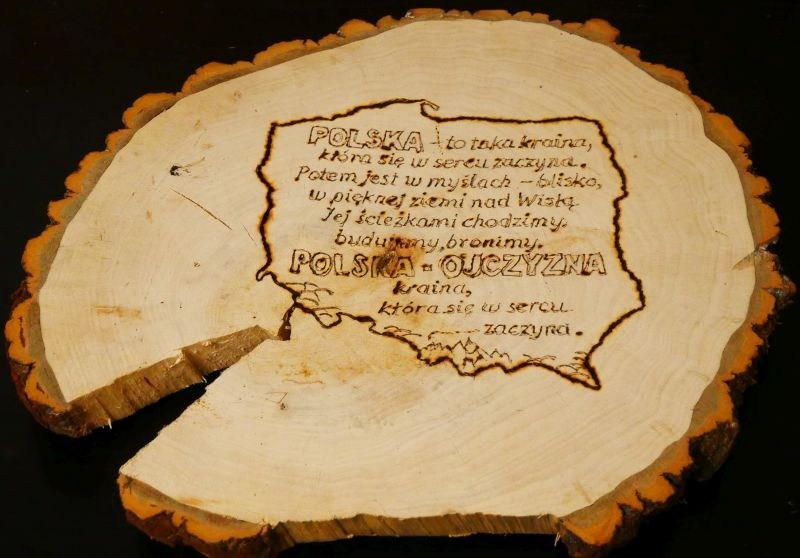 POLSKA - to taka kraina,
która się w sercu zaczyna.
Potem jest w myślach - blisko,
w pięknej ziemi nad Wisłą
Jej ścieżkami chodzimy,
budujemy, bronimy.
POLSKA - OJCZYZNA
kraina,
która się w sercu
zaczyna.